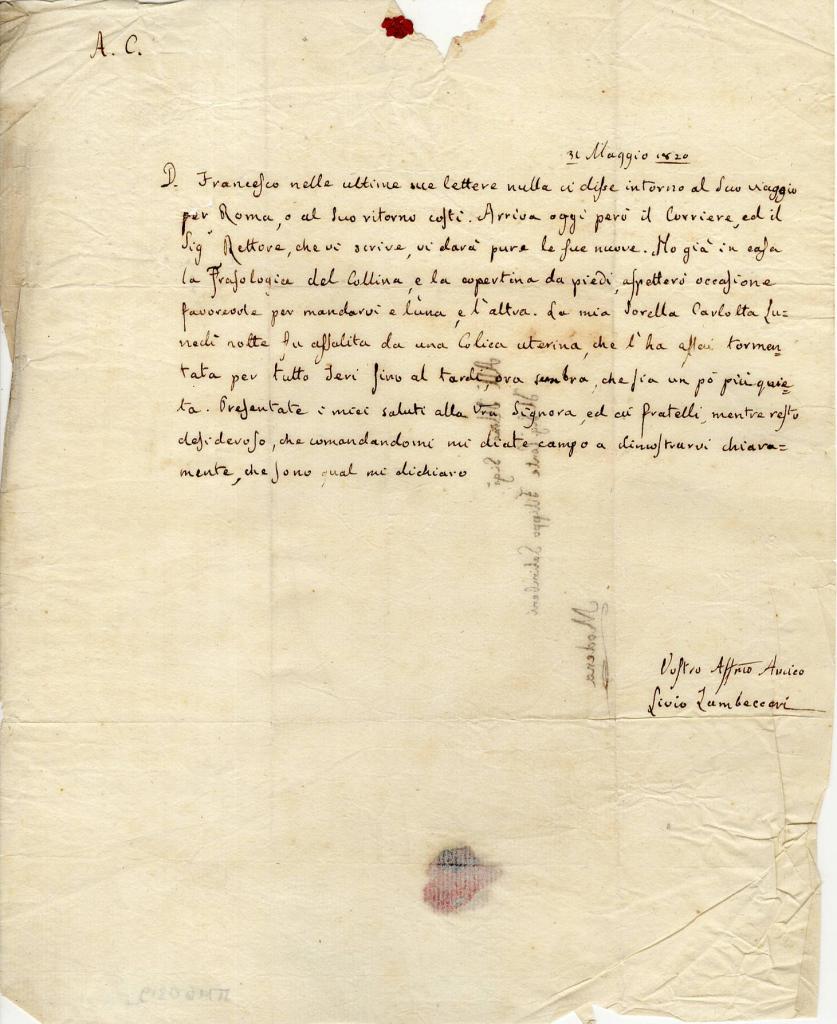 A. C.
31 Maggio 1820
D. Francesco nelle ultime sue lettere nulla ci disse intorno al suo viaggio
per Roma, o al suo ritorno costì. Arriva oggi però il Corriere, ed il
Sig.r Rettore, che vi scrive, vi darà pure le sue nuove. Ho già in casa
la Frasologia del Collina, e la copertina da piedi, aspetterò occasione
favorevole per mandarvi e l'una, e l'altra. La mia Sorella Carlotta Lu=
nedì notte fu assalita da una Colica uterina, che l'ha assai tormen=
tata per tutto Jeri sino al tardi, ora sembra, che sia un pò più quie=
ta. Presentate i miei saluti alla Vra Signora, ed ai fratelli, mentre resto
desideroso, che comandandomi mi diate campo a dimostrarvi chiara=
mente, che sono qual mi dichiaro
Vostro Affmo Amico
Livio Zambeccari
Filippo
Modena